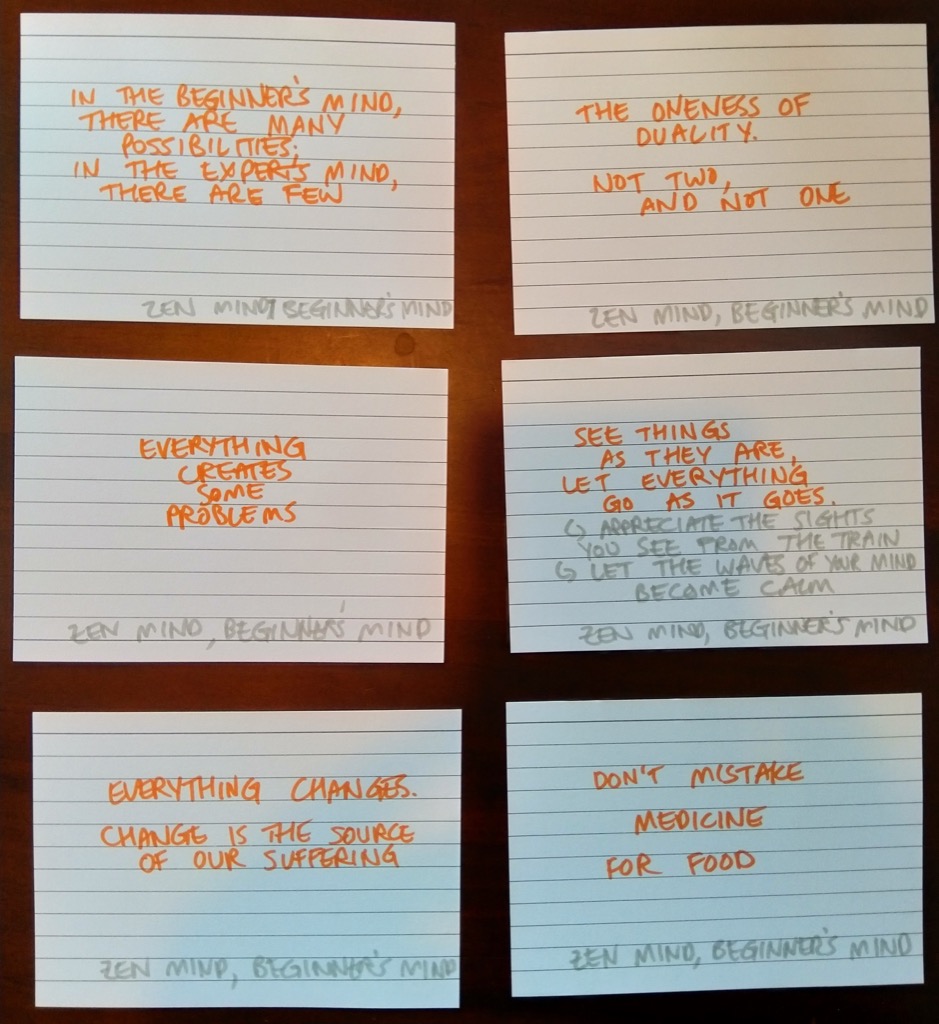 IN THE BEGINNER'S MIND,
THERE ARE MANY
POSSIBILITIES;
IN THE EXPERT'S MIND,
THERE ARE FEW
ZEN MIND, BEGINNER'S MIND
THE ONENESS OF
DUALITY.
NOT TWO,
AND NOT ONE
ZEN MIND, BEGINNER'S MIND
EVERYTHING
CREATES
SOME
PROBLEMS
ZEN MIND, BEGINNER'S MIND
SEE THINGS
AS THEY ARE,
LET EVERYTHING
GO AS IT GOES.
↳ APPRECIATE THE SIGHTS
YOU SEE FROM THE TRAIN
↳ LET THE WAVES OF YOUR MIND
BECOME CALM
ZEN MIND, BEGINNER'S MIND
EVERYTHING CHANGES.
CHANGE IS THE SOURCE
OF OUR SUFFERING
ZEN MIND, BEGINNER'S MIND
DON'T MISTAKE
MEDICINE
FOR FOOD
ZEN MIND, BEGINNER'S MIND